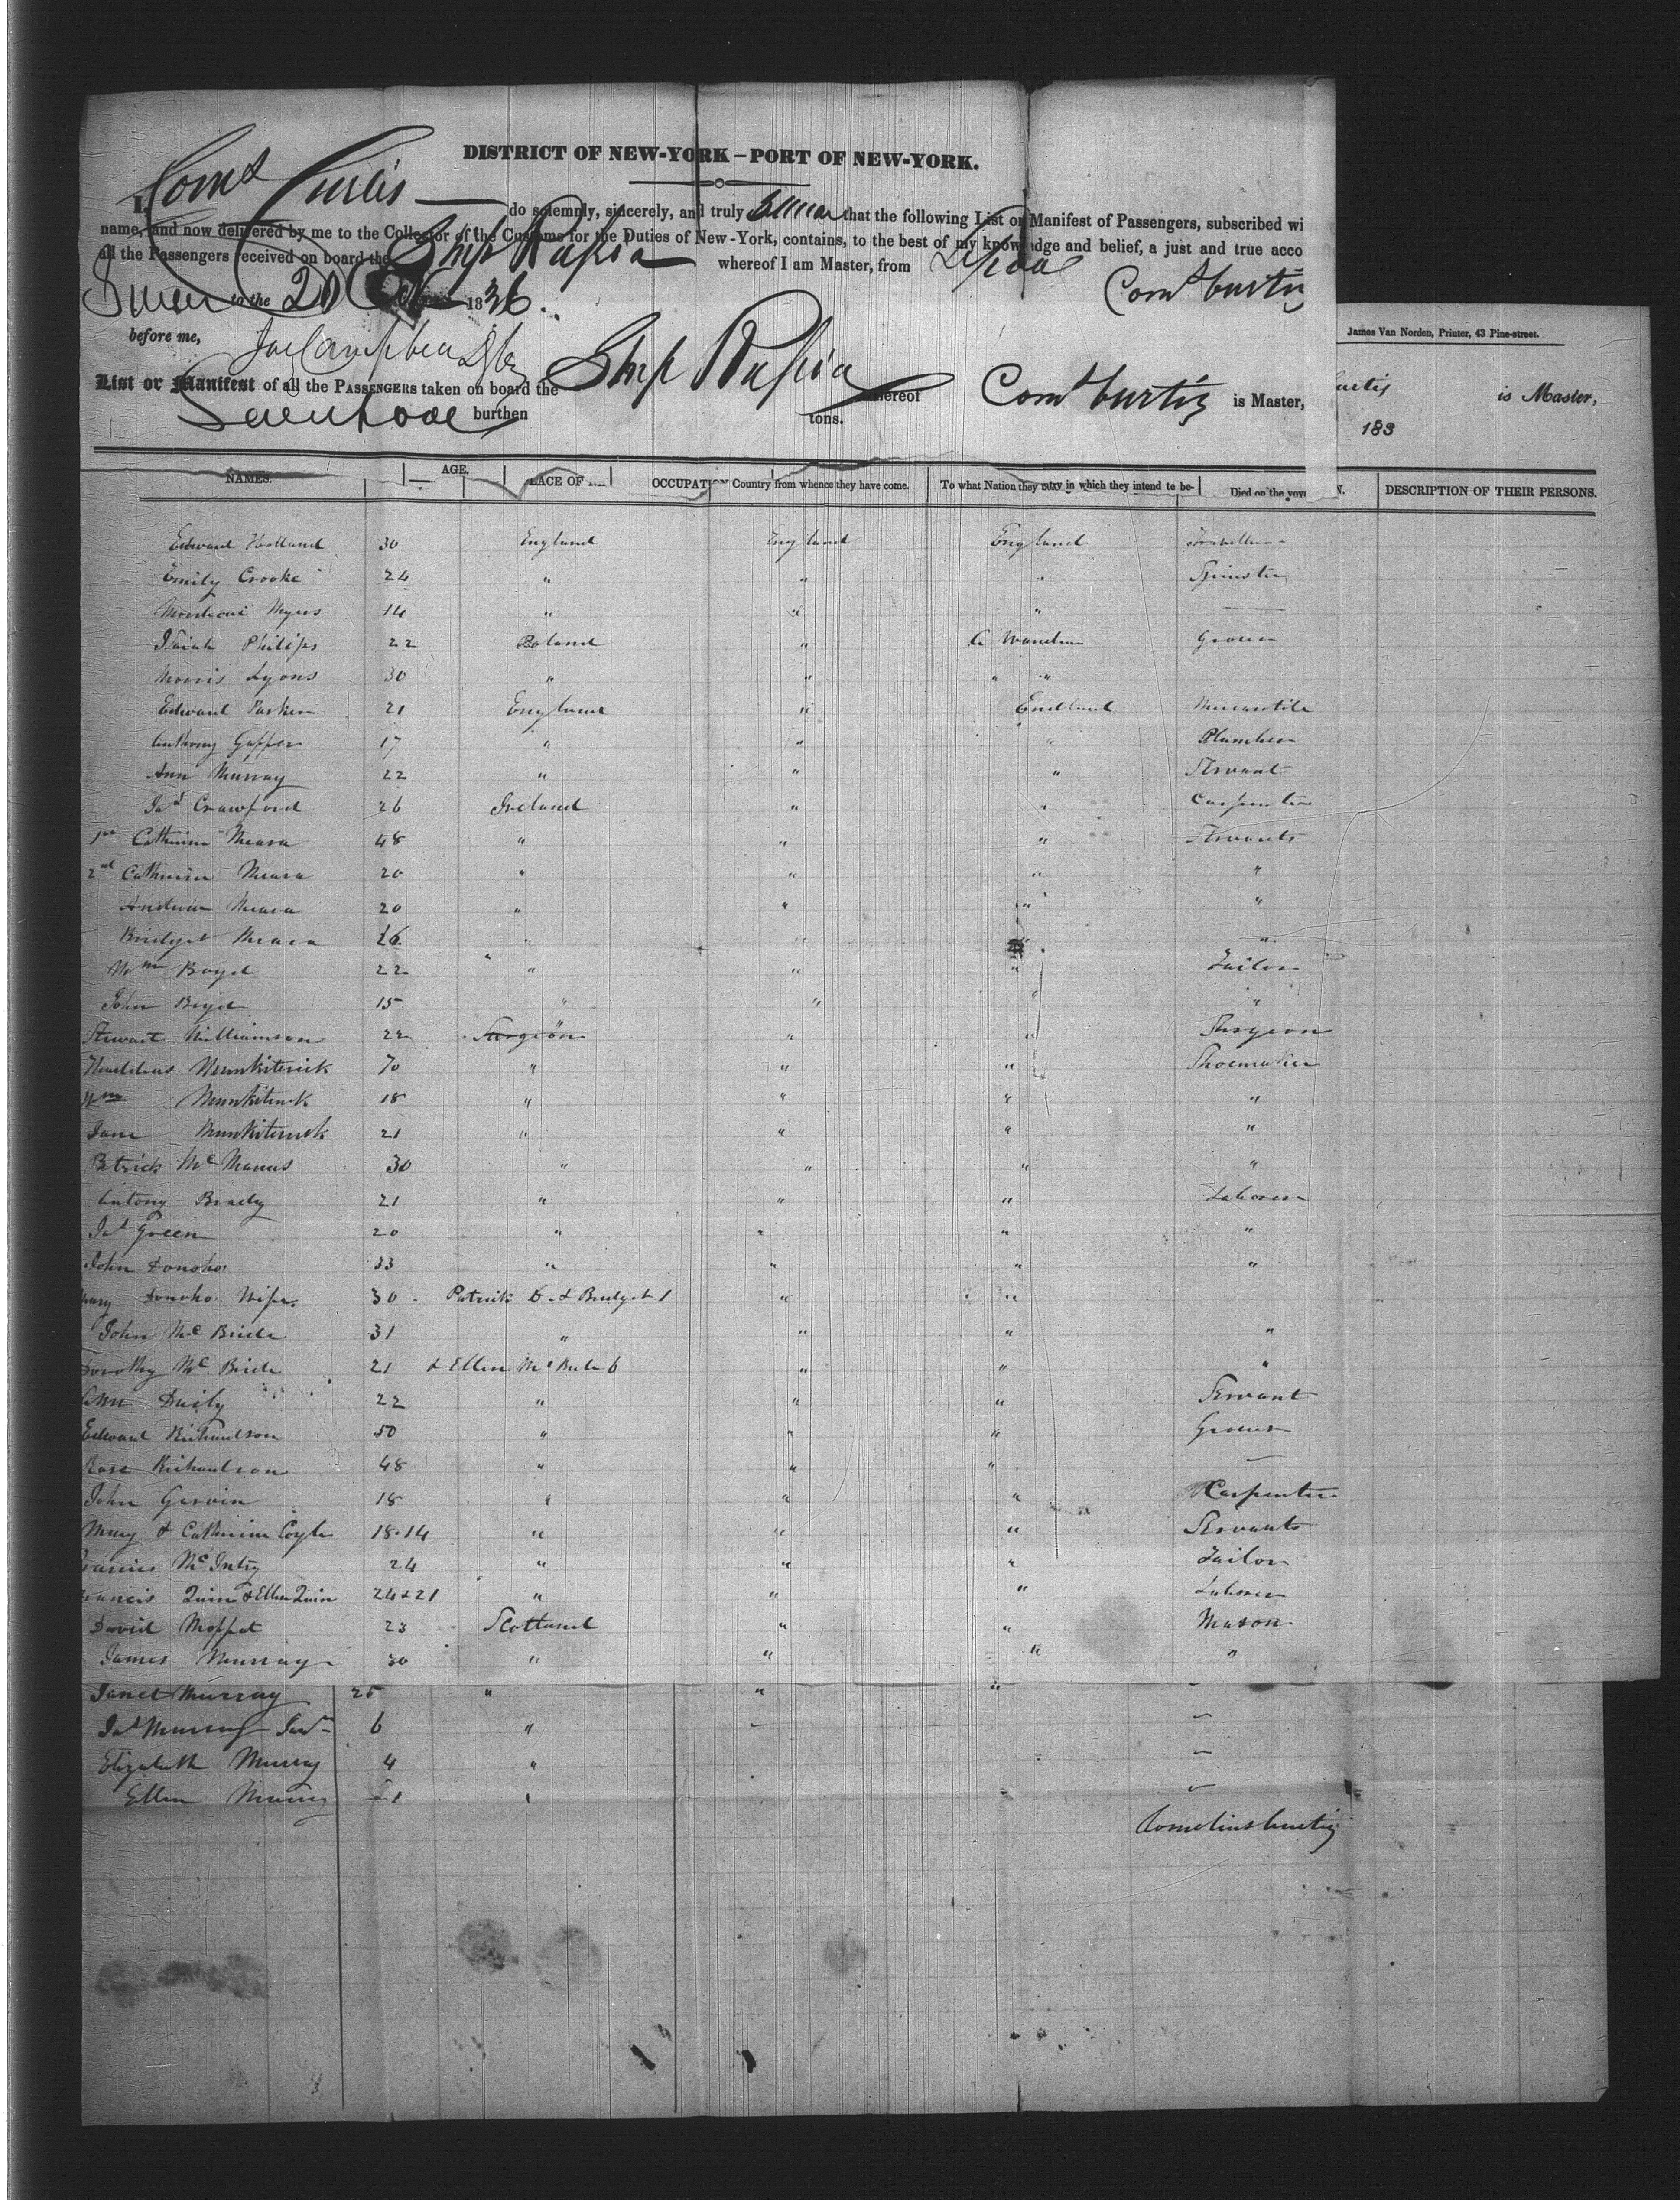 DISTRICT OF NEW-YORK – PORT OF NEW-YORK.
I, Corn.s Curtis do solemnly, sincerely, and truly Swear that the following List or Manifest of Passengers, subscribed wi
name, and now delivered by me to the Collector of the Customs for the Duties of New-York, contains, to the best of my knowledge and belief, a just and true acco
all the Passengers received on board the Ship Russia whereof I am Master, from Lpool
Sworn to the 20 1836. Corn.s Curtis
before me,
James Van Norden, Printer, 43 Pine-street.
List or Manifest of all the PASSENGERS taken on board the Ship Russia whereof Corn.s Curtis is Master,
Liverpool burthen tons.
urtis is Master,
183
NAMES. AGE. PLACE OF OCCUPATION Country from whence they have come. To what Nation they in which they intend to be- Died on the voy N. DESCRIPTION OF THEIR PERSONS.
Edward Holland 30 England England England
Emily Crooke 24 " " " Spinster
Mordecai Myers 14 " " " —
Isaiah Philips 22 Poland " Grocer
Morris Lyons 30 " " " "
Edward Parker 21 England " England Mercantile
Anthony Gapper 17 " " " Plumber
Ann Murray 22 " " " Servant
Ja.s Crawford 26 Ireland " " Carpenter
1st Catherine Meara 48 " " " Servants
2nd Catherine Meara 20 " " " "
Andrew Meara 20 " " " "
Bridget Meara 16 " " " "
Wm Boyd 22 " " " Tailor
John Boyd 15 " " " "
Stewart Williamson 22 Surgeon " " " Surgeon
Thaddeus Munkiterick 70 " " " Shoemaker
Wm Munkiterick 18 " " " "
Jane Munkiterick 21 " " " "
Patrick McManus 30 " " " "
Antony Brady 21 " " " Laborer
Ja.s Green 20 " " " "
John Donoho 33 " " " "
Mary Donoho Wife. 30 Patrick 6 & Bridget 1 " "
John McBride 31 " " " "
Dorothy McBride 21 & Ellen McBride 6 " " "
Ann Daily 22 " " " Servant
Edward Richardson 50 " " " Grocer
Rose Richardson 48 " " " —
John Garvin 18 " " " Carpenter
Mary & Catherine Coyle 18.14 " " " Servants
Francis McIntey 24 " " " Tailor
Francis Quinn & Ellen Quin 24 & 21 " " " Laborer
David Moffat 23 Scotland " " Mason
James Murray 30 " " " "
Janet Murray 25 " " " -
Ja.s Murray Jun.r 6 " - -
Elizabeth Murray 4 " -
Ellen Murray 1 " -
Cornelius Curtis